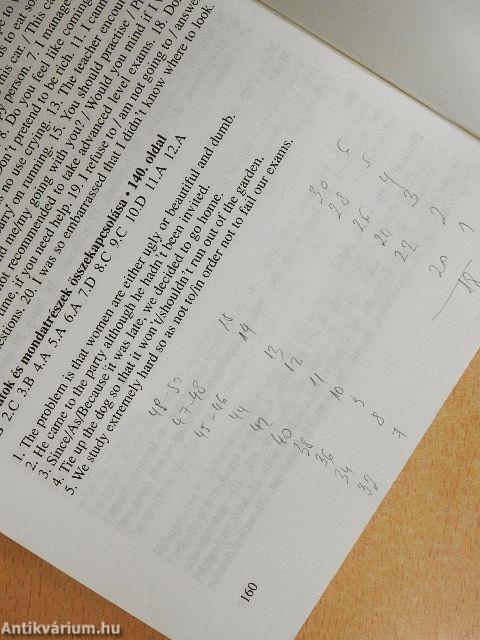 person. 7. I manage
8. Do you feel like coming
pretend to be rich. 11. I cann
no use crying. 13. The teacher encou
on running. 15. You should practise / P
me/my going with you? / Would you mind if I w
not recommended to take advanced level exams. 18. Do
if you need help. 19. I refuse to / am not going to / answe
20. I was so embarrassed that I didn't know where to look
és mondatrészek összekapcsolása • 140. oldal
2.C 3.B 4.A 5.A 6.A 7.D 8.C 9.C 10.D 11.A 12.A
1. The problem is that women are either ugly or beautiful and dumb.
2. He came to the party although he hadn't been invited.
3. Since/As/Because it was late, we decided to go home.
4. Tie up the dog so that it won't/shouldn't run out of the garden.
5. We study extremely hard so as not to/in order not to fail our exams.
18 1
20 2
22 3
24 4
26
28 5
30 6
32 7
34 8
36 9
38 10
40 11
42 12
44 13
45-46 14
47-48
160
Antikvárium.hu